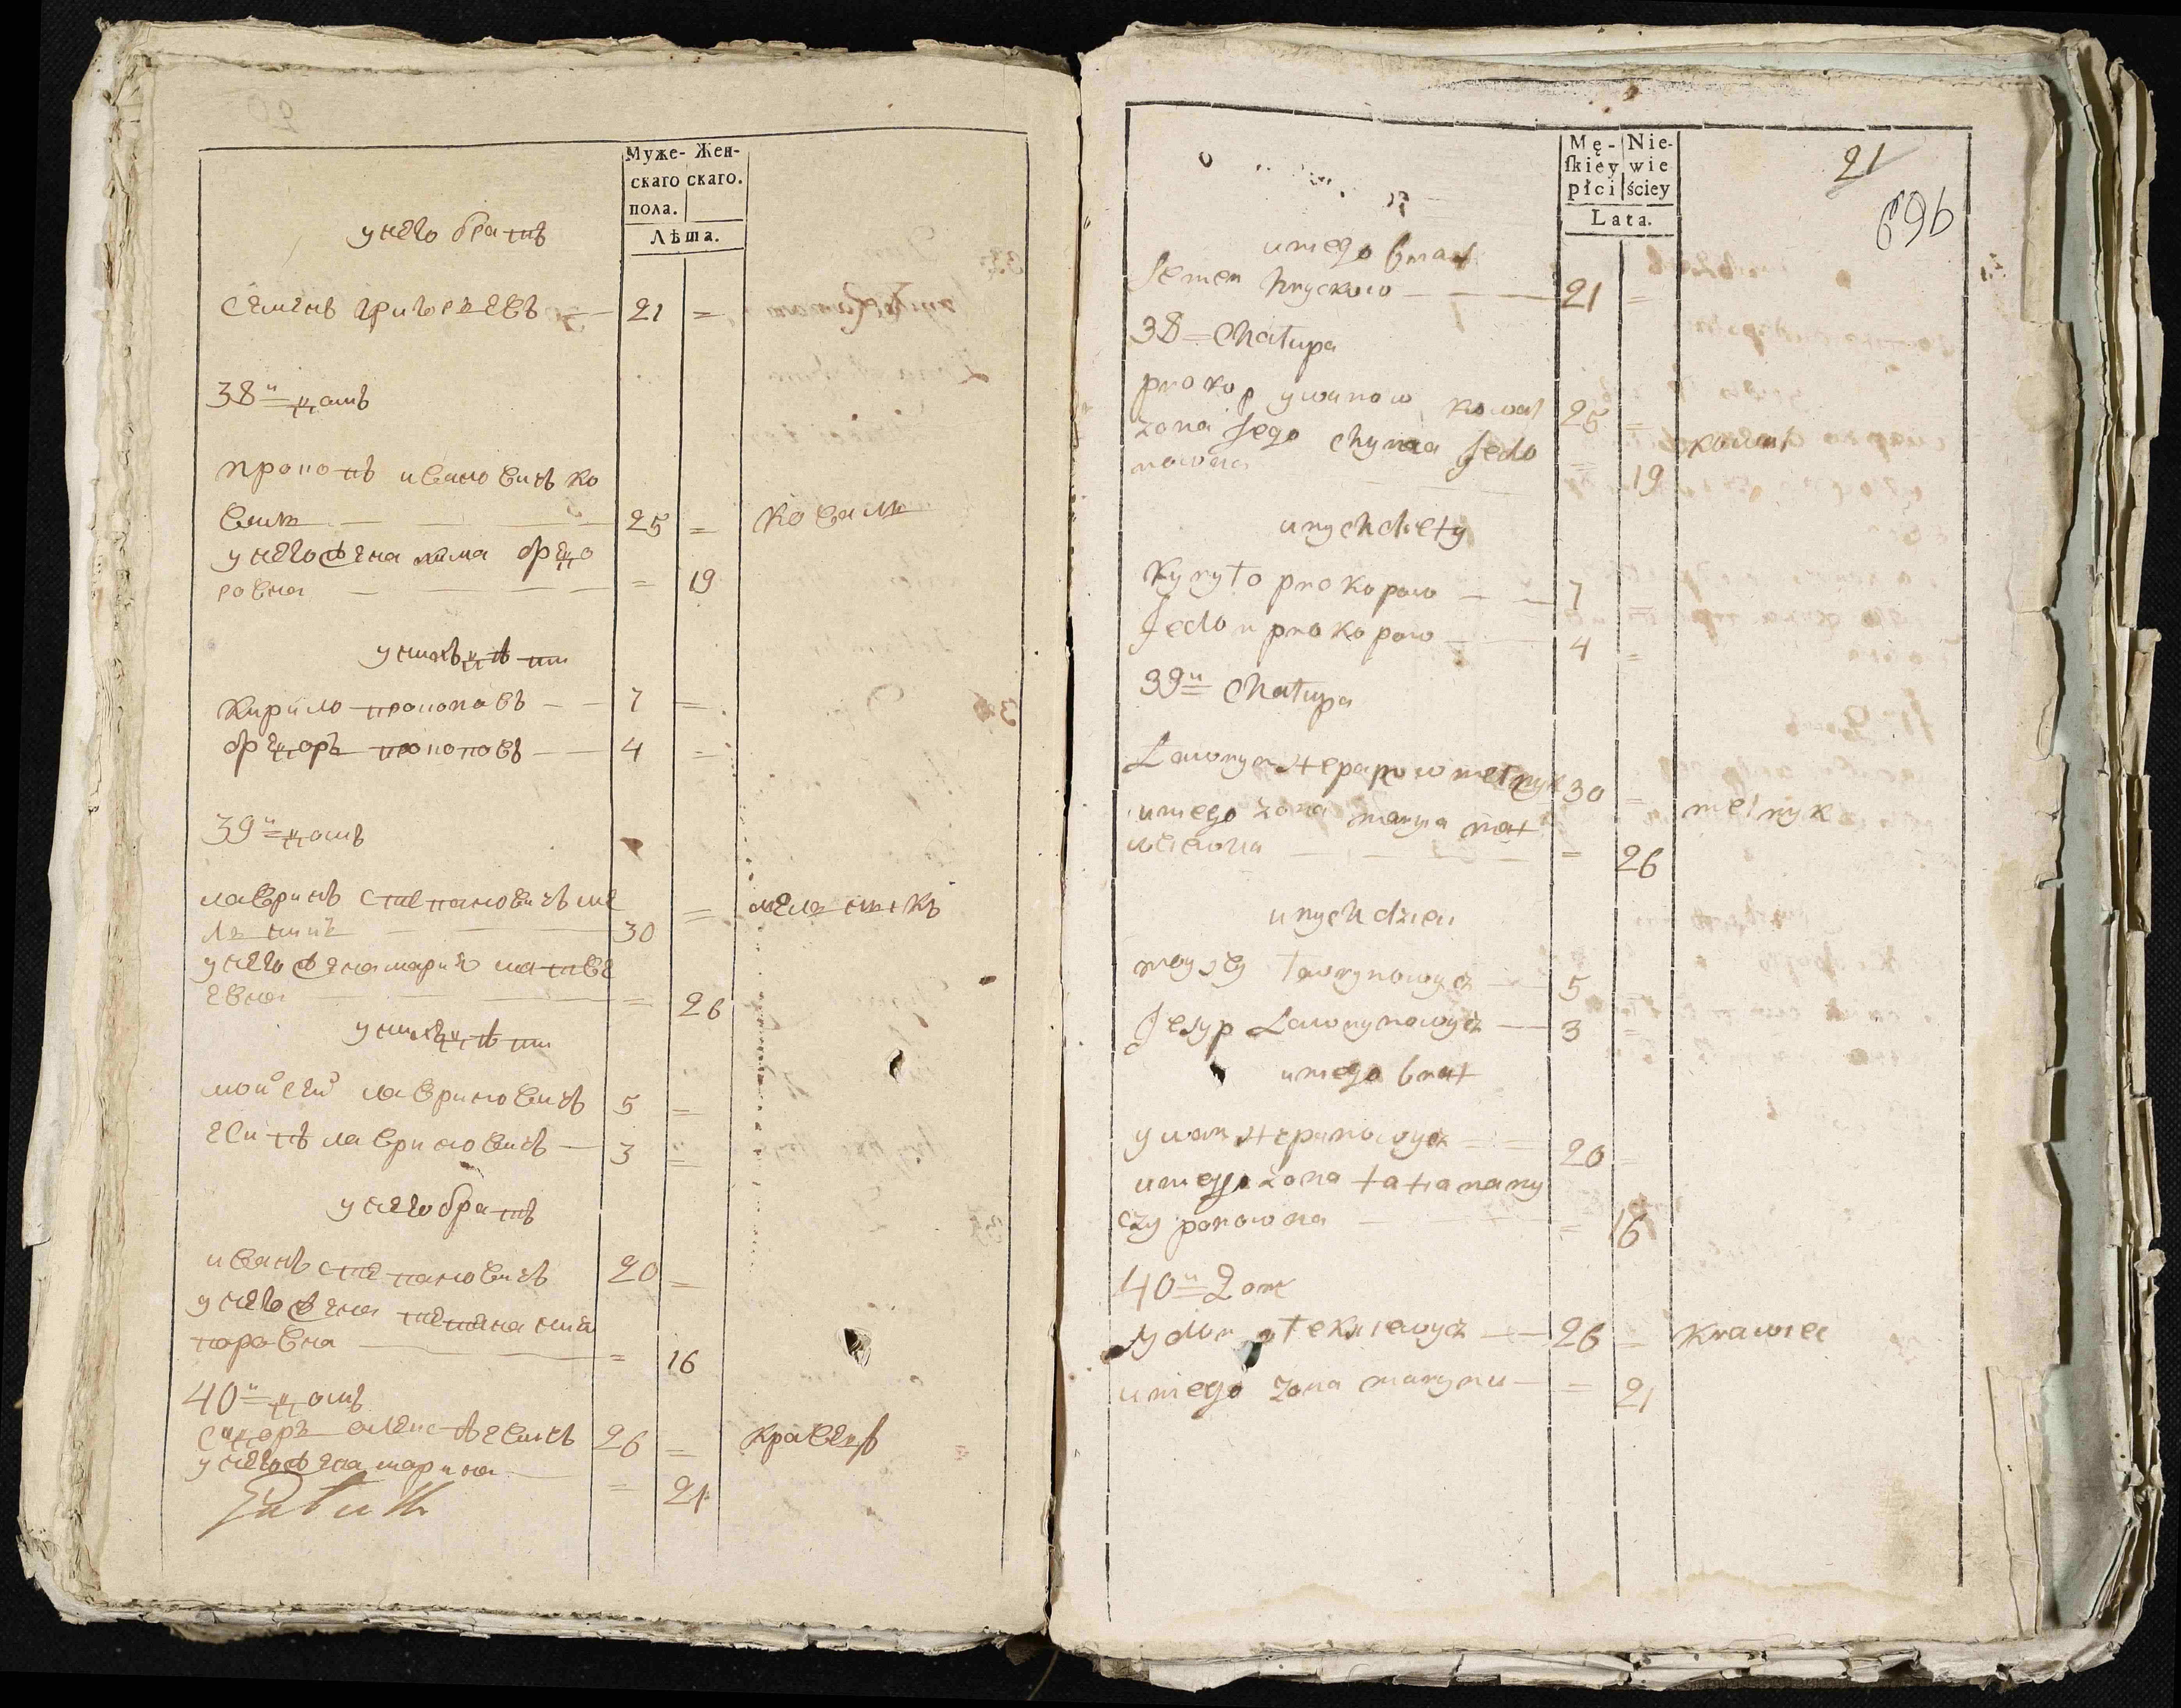 Муже- Жен-
скаго скаго.
пола.
Лѣта.
у него братъ
Семенъ григоревъ 21 =
38й домъ
прокопъ ивановичъ ко
валь 25 = коваль
у него жена хима федо
ровна = 19
у нихъ дѣти
Кирило прокоповъ 7 =
федоръ прокоповъ 4 =
39й домъ
лавринъ степановичъ ме
льникъ 30 = мельникъ
у него жена мария матве
евна = 26
у нихъ дѣти
мойсей лавриновичъ 5 =
есипъ лавриновичъ 3 =
у него братъ
иванъ степановичъ 20 =
у него жена татяна ничи
поровна = 16
40й домъ
сидоръ алексѣевичъ 26 = кравецъ
у него жена марина = 21
Mę- Nie-
skiey wie
płci ściey
Lata.
21
696
u niego brat
Semen hryckow 21 =
38 = Chałupa
prokop ywanow kowal 25 = kowal
zona Jego chyma fedo
rowna = 19
u nych diety
Kyryło prokopow 7 =
fedor prokopow 4 =
39й Chałupa
Lawryn stepanow melnyk 30 = melnyk
u niego zona marya mat
wiewna = 26
u nych dzieci
moysey Lawrynowycz 5 =
Jesyp Lawrynowycz 3 =
u niego brat
ywan stepanowycz 20 =
u niego zona tatiana ny
czyporowna = 16
40й Dom
sydor ołeksiewycz 26 = Krawiec
u niego zona maryna = 21